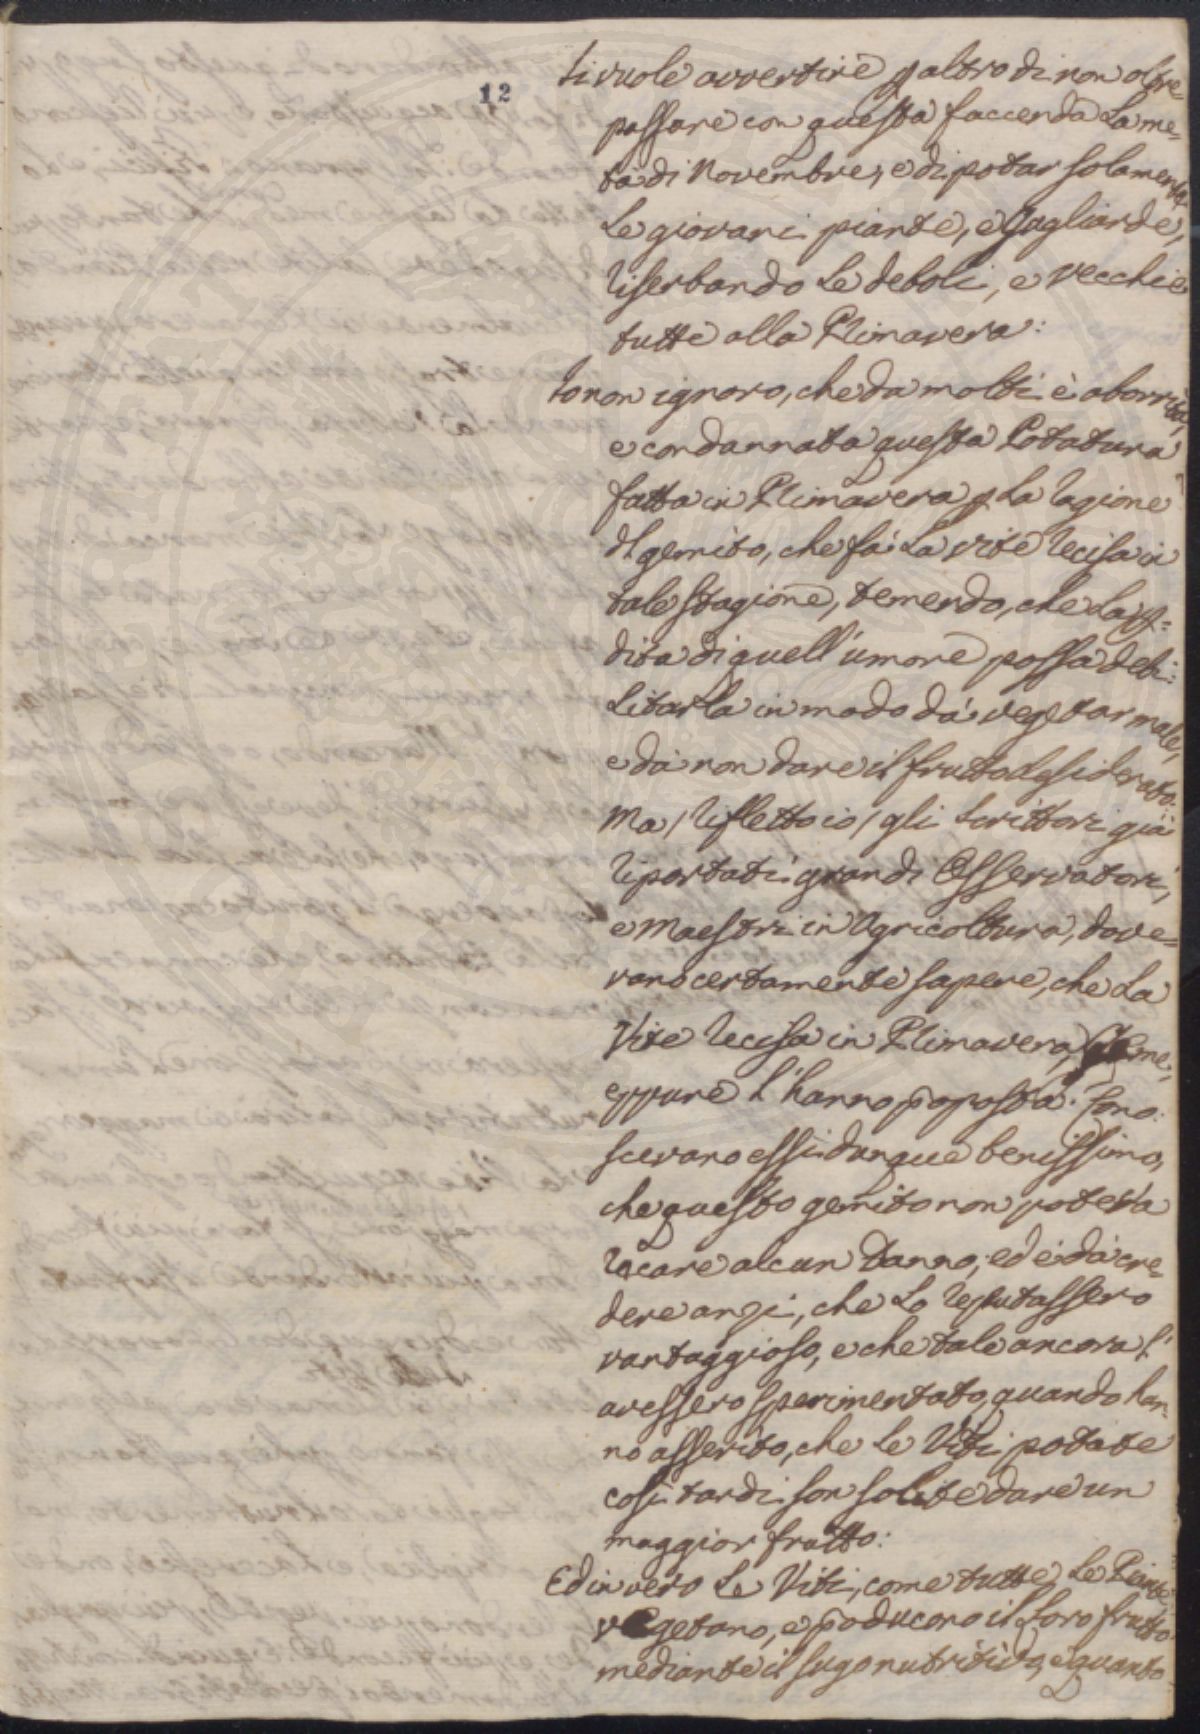 12
Si vuole avvertire p altro di non oltre-
passare con questa faccenda la me-
tà di Novembre, e di potar solamente
le giovani piante, e gagliarde,
riserbando le deboli, e vecchie
tutte alla Primavera:
Io non ignoro, che da molti è aborrita,
e condannata questa Potatura
fatta in Primavera p la ragione
del gemito, che fà la vite recisa in
tale stagione, temendo, che la p-
dita di quell'umore possa debi-
litarla in modo dà vegetar male,
e dà non dare il frutto desiderato.
Ma / rifletto io / gli scrittori già
riportati grandi Osservatori,
e maestri in Agricoltura, dove-
vano certamente sapere, che la
Vite recisa in Primavera, geme,
eppure l'hanno proposta. Cono-
scevano essi dunque benissimo,
che questo gemito non poteva
recare alcun Danno; ed è dà cre-
dere anzi, che lo reputassero
vantaggioso, e che tale ancora l'
avessero sperimentato, quando han-
no asserito, che le Viti potate
così tardi son solite dare un
maggior frutto:
Ed in vero le Viti, come tutte le Piante
vegetano, e producono il loro frutto
mediante il sugo nutritivo, e quanto